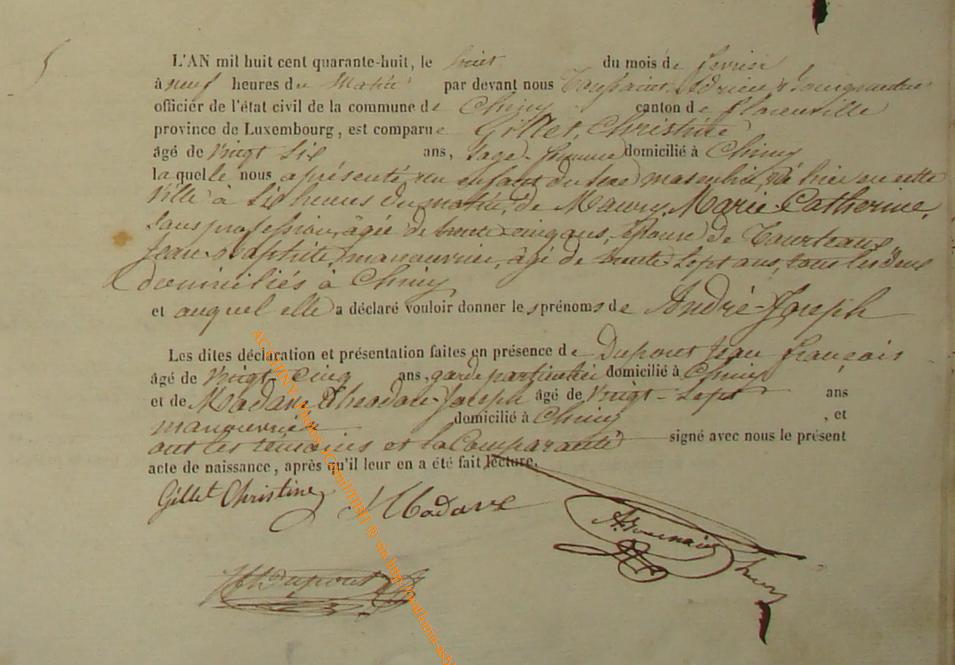 L'AN mil huit cent quarante-huit, le huit du mois de fevrier
à neuf heures du Matin par devant nous Adrien
officiér de l'état civil de la commune de Chiny canton de florenville
province de Luxembourg, est comparue Gillet, Christine
âgé de Vingt Six ans, Sage-femme domicilié à Chiny
la quelle nous a présenté un enfant du sexe masculin, né hier en cette
Ville à Six heures du matin, de Maury, Marie-Catherine,
sans profession, âgée de trente cinq ans, épouse de Tourteaux
Jean-baptiste, manouvrier, âgé de trente Sept ans, tous les deux
domiciliés à Chiny
et auquel elle a déclaré vouloir donner les prénoms de André-Joseph
Les dites déclaration et présentation faites en présence de Dupont Jean françois
âgé de Vingt Cinq ans, garde particulier domicilié à Chiny
et de Madave Théodore-Joseph âgé de Vingt-Sept ans
manouvrier domicilié à Chiny , et
ont les témoins et la Comparante signé avec nous le présent
acte de naissance, après qu'il leur en a été fait lecture.
Gillet Christine
Madave
Dupont